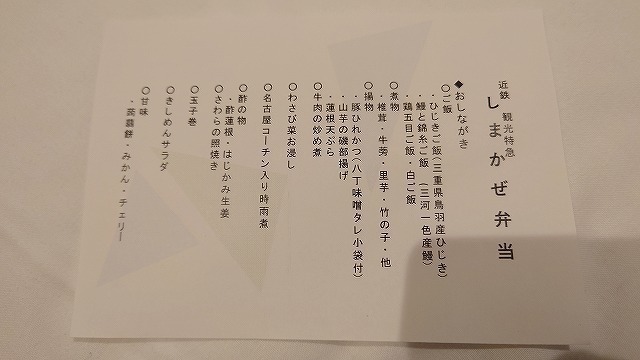 近鉄 観光特急
しまかぜ弁当
◆おしながき
〇ご飯
・ひじきご飯(三重県鳥羽産ひじき)
・鰻と錦糸ご飯 (三河一色産鰻)
・鶏五目ご飯・白ご飯
〇煮物
・椎茸・牛蒡・里芋・竹の子・他
〇揚物
・豚ひれかつ(八丁味噌タレ小袋付)
・山芋の磯部揚げ
・蓮根天ぷら
〇牛肉の炒め煮
〇わさび菜お浸し
〇名古屋コーチン入り時雨煮
〇酢の物
・酢蓮根・はじかみ生姜
〇さわらの照焼き
〇玉子巻
〇きしめんサラダ
〇甘味
・蒟蒻餅・みかん・チェリー